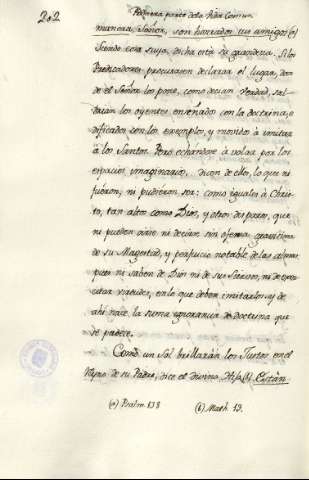 202
Primera parte de la Vida Comun
manera Señor, son honrados tus amigos (a)
Siendo cosa suya, dicha esta su grandeza. Si los
Predicadores procurasen declarar el lugar, don
de el Señor los pone, como decian verdad, sal
drian los oyentes enseñados con la doctrina, e
dificados con los exemplos, y movidos à imitar
à los Santos. Pero echandose à volar por los
espacios imaginarios, dicen de ellos, lo que ni
fueron, ni pudieron ser: como iguales à Chris
to, tan altos como Dios, y otros disparates, que
ni pueden oirse ni decirse, sin ofensa gravisima
de su Magestad, y perjuicio notable de las almas,
pues ni saben de Dios ni de sus Siervos, ni de exe
cutar virtudes, en lo que deben imitarlos: y de
ahi nace, la suma ignorancia de doctrina que
se padece.
Como un Sol brillarán los Justos, en el
Reyno de su Padre, dice el divino Hijo (b). Están
(a) Psalm. 138
(b) Math. 13.